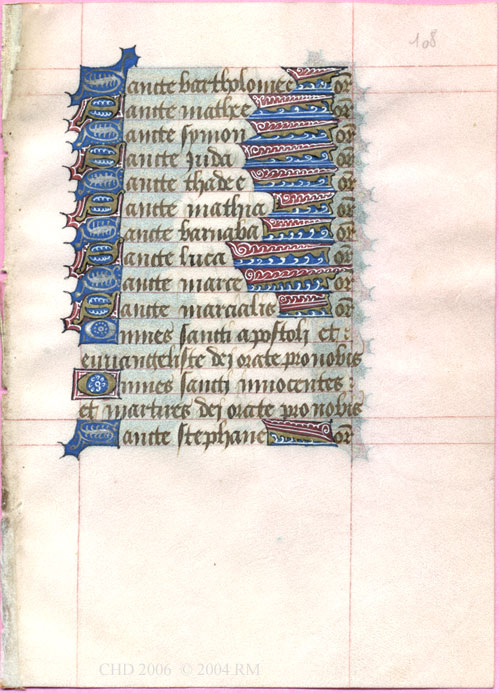 108
Sancte bartholomee or
Sancte mathee or
Sancte symon or
Sancte iuda or
Sancte thadee or
Sancte mathia or
Sancte barnaba or
Sancte luca or
Sancte marce or
Sancte marcialis or
Omnes sancti apostoli et
euuangeliste dei orate pro nobis
Omnes sancti innocentes :
et martires dei orate pro nobis
Sancte stephane or
CHD 2006 © 2004 RM